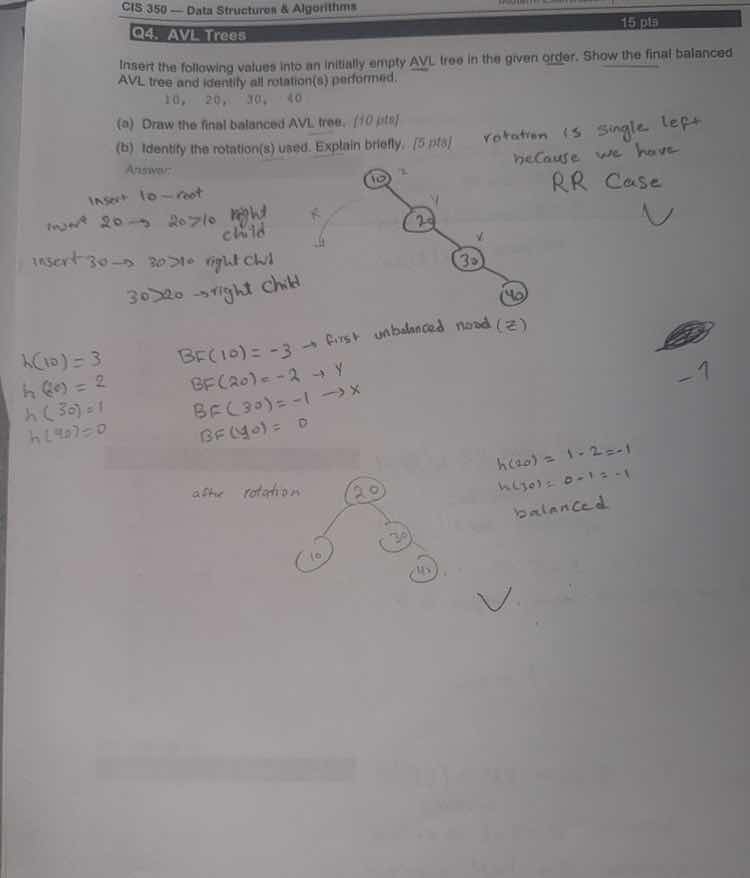 CIS 350 — Data Structures & Algorithms
Q4. AVL Trees
15 pts
Insert the following values into an initially empty AVL tree in the given order. Show the final balanced
AVL tree and identify all rotation(s) performed.
10, 20, 30, 40
(a) Draw the final balanced AVL tree. [10 pts]
(b) Identify the rotation(s) used. Explain briefly. [5 pts]
rotation is single left
because we have
RR Case
Answer:
insert 10 - root
insert 20 → 20>10 right
child
insert 30 → 30>10 right child
30>20 → right child
10 z
20 y
30 x
40
R
h(10) = 3
h(20) = 2
h(30) = 1
h(40) = 0
BF(10) = -3 → first unbalanced nood (Z)
BF(20) = -2 → Y
BF(30) = -1 → X
BF(40) = 0
-1
after rotation
20
10
30
40
h(20) = 1-2=-1
h(30) = 0-1=-1
balanced